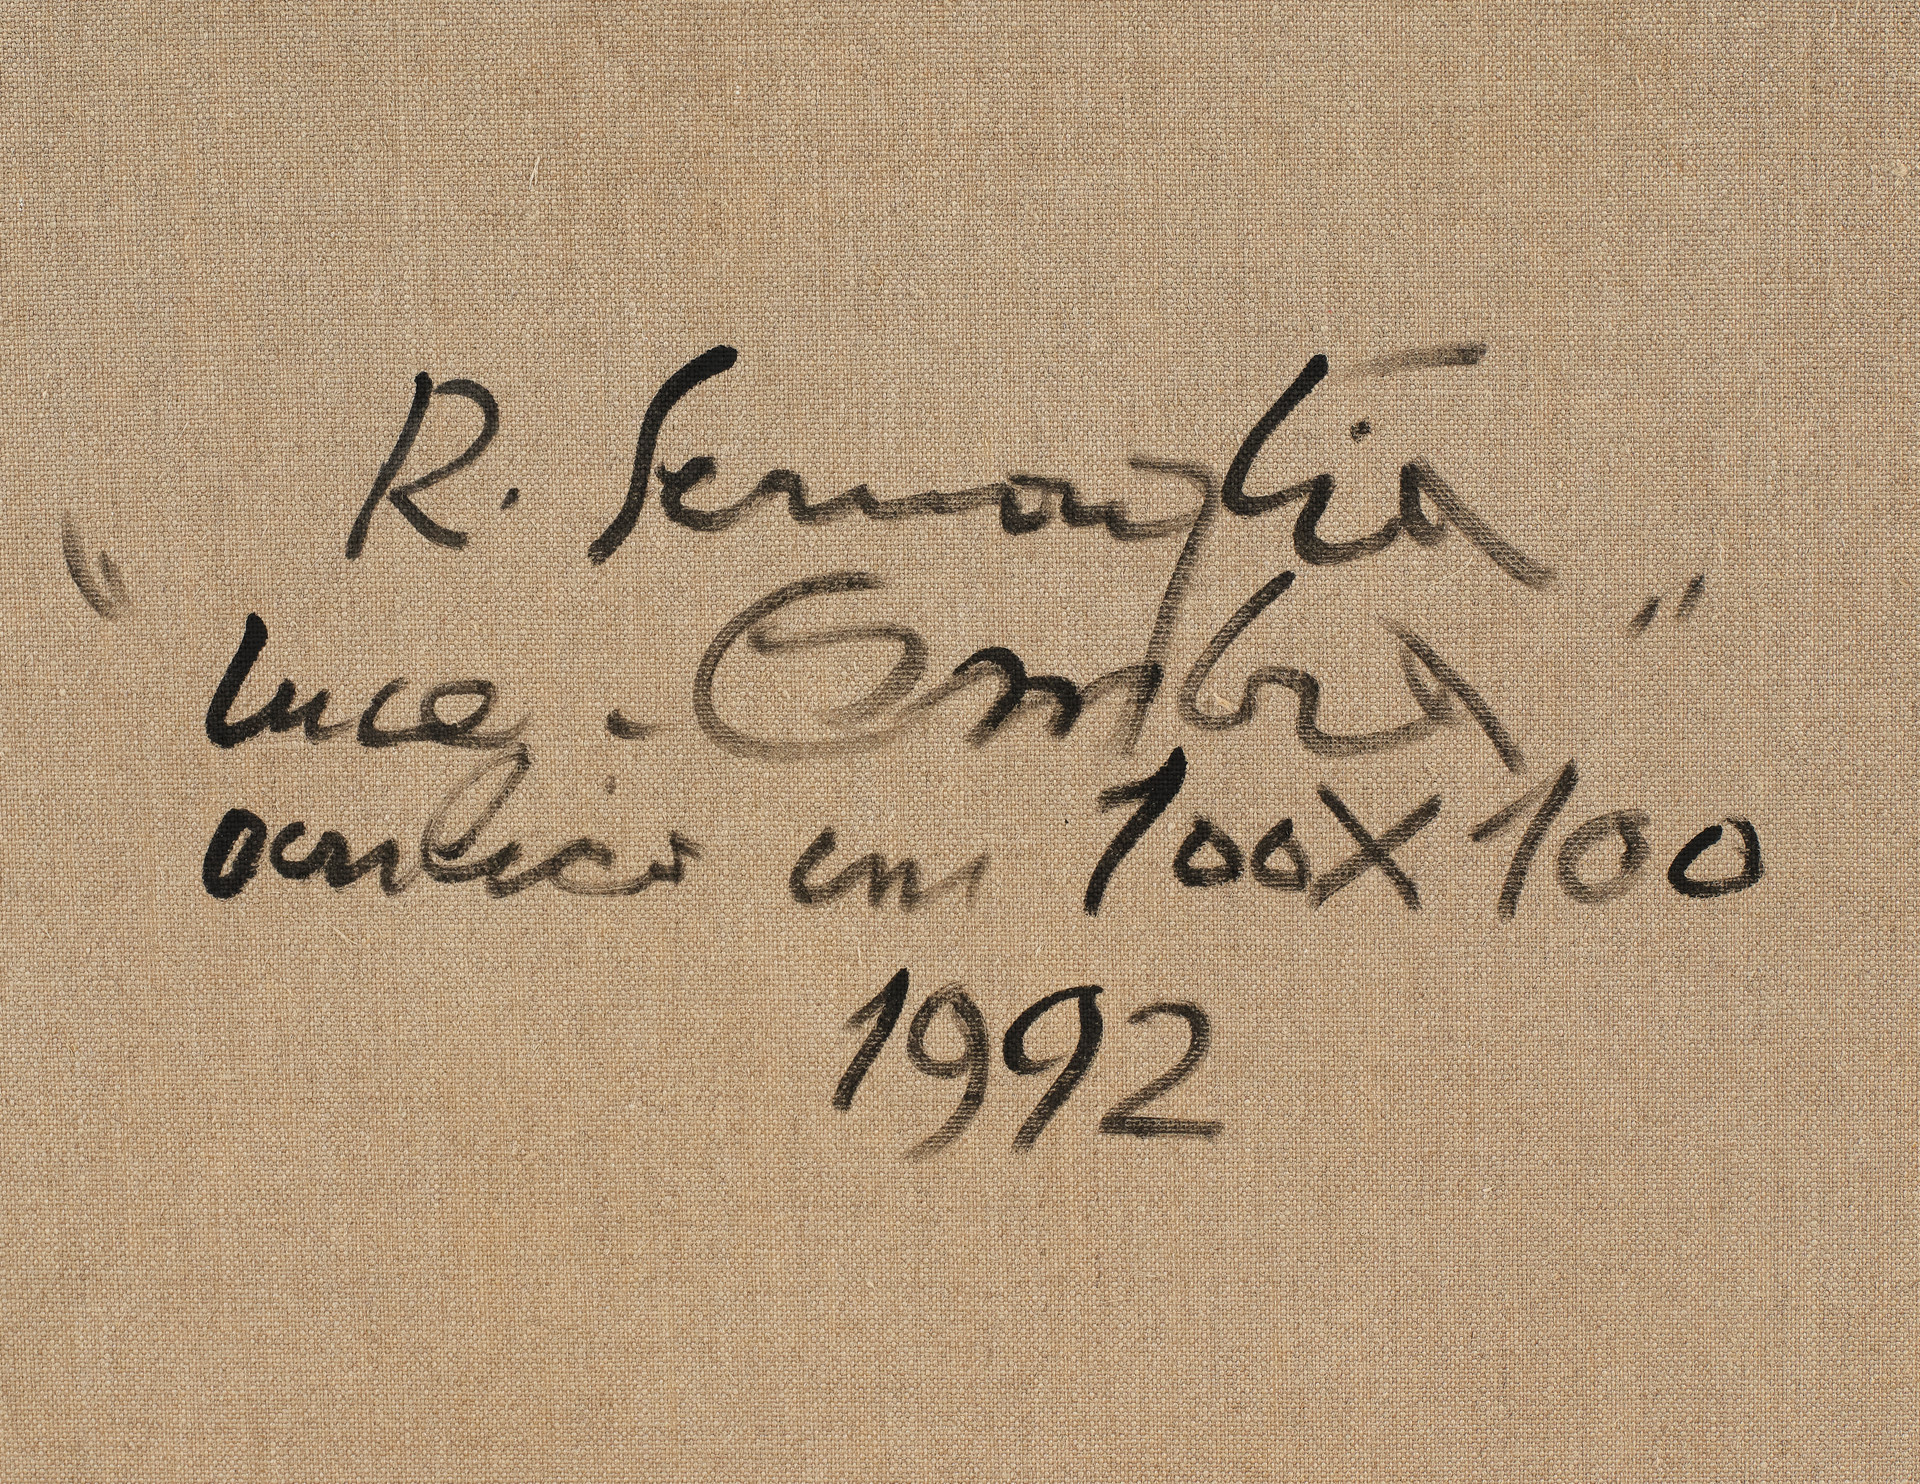 R. Sernaglia
"Luce - Ombra"
acrilico cm 100X100
1992